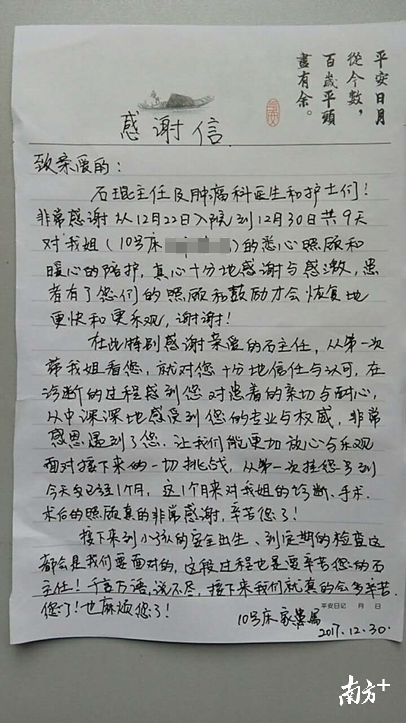 平安日月
從今數，
百歲平頭
盡有余。
感谢信
致亲爱的：
石琨主任及肿瘤科医生和护士们！
非常感谢从12月22日入院到12月30日共9天
对我姐（10号床）的悉心照顾和
暖心的陪护，真心十分地感谢与感激，患
者有了您们的照顾和鼓励才会恢复地
更快和更乐观，谢谢！
在此特别感谢亲爱的石主任，从第一次
带我姐看您，就对您十分地信任与认可，在
诊断的过程感到您对患者的亲切与耐心，
从中深深地感受到您的专业与权威，非常
感恩遇到了您，让我们能更加放心与乐观
面对接下来的一切挑战，从第一次挂您号到
今天已经1个月，这1个月来对我姐的诊断、手术、
术后的照顾真的非常感谢，辛苦您了！
接下来到小孩的安全出生、到定期的检查这
都会是我们要面对的，这段过程也是要辛苦您的石
主任！千言万语，说不尽，接下来我们就真的会多辛苦
您了！也麻烦您了！
平安日记 月 日
10号床家属
2017.12.30.
南方+